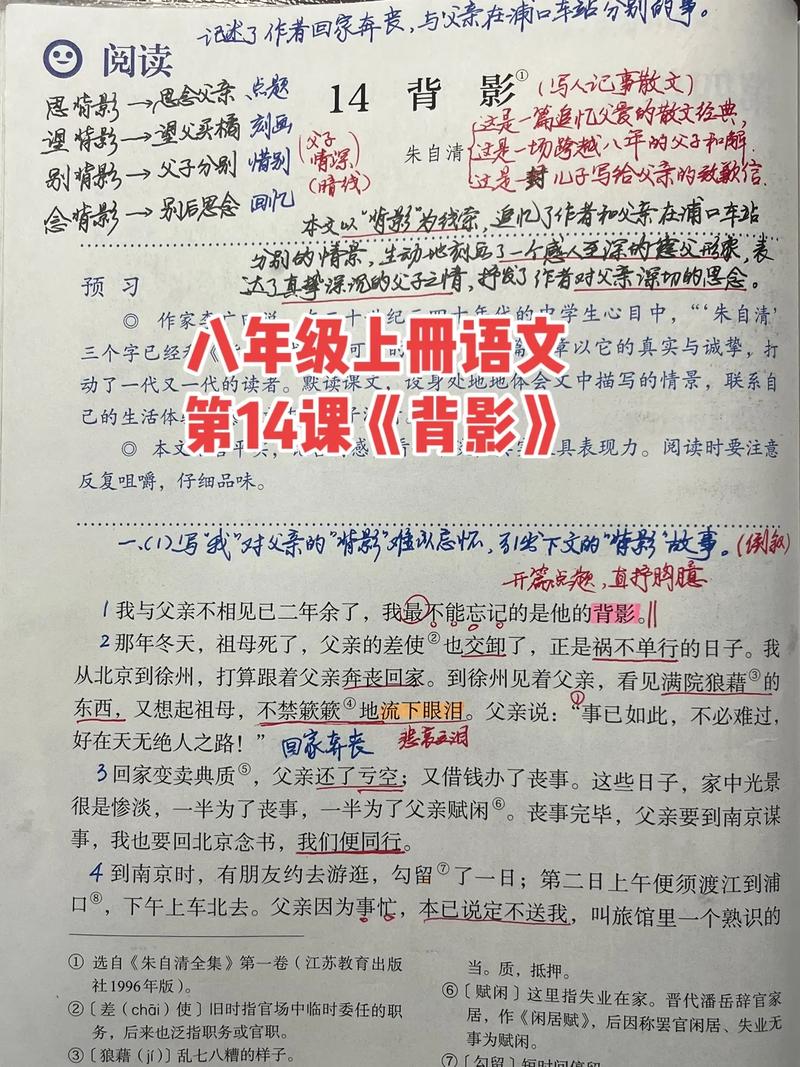 记述了作者回家奔丧，与父亲在浦口车站分别的事。
阅读
思背影→思念父亲 点题
望背影→望父买橘 刻画
别背影→父子分别 惜别
念背影→别后思念 回忆
(父子
情深
(暗线)
14 背影①
(写人记事散文)
朱自清
这是一篇追忆父爱的散文经典，
这是一场跨越八年的父子和解，
这是一封儿子写给父亲的致歉信.
本文以"背影"为线索，追忆了作者和父亲在浦口车站
分别的情景，生动地刻画了一个感人至深的慈父形象，表
达了真挚深沉的父子之情，抒发了作者对父亲深切的思念。
预习
◎ 作家李广田说，
二十世纪三四十年代的中学生心目中，“‘朱自清’
三个字已经
以它的真实与诚挚，打
动了一代又一代的读者。默读课文，设身处地地体会文中描写的情景，联系
自己的生活体
◎ 本文
具表现力。阅读时要注意
反复咀嚼，仔细品味。
八年级上册语文
第14课《背影》
一.(1).写"我"对父亲的"背影"难以忘怀，引出下文的"背影"故事。(倒叙)
开篇点题，直抒胸臆
1 我与父亲不相见已二年余了，我最不能忘记的是他的背影。
2 那年冬天，祖母死了，父亲的差使②也交卸了，正是祸不单行的日子。我
从北京到徐州，打算跟着父亲奔丧回家。到徐州见着父亲，看见满院狼藉③的
东西，又想起祖母，不禁簌簌④地流下眼泪。父亲说：“事已如此，不必难过，
好在天无绝人之路！” 回家奔丧 悲哀之泪
①
3 回家变卖典质⑤，父亲还了亏空；又借钱办了丧事。这些日子，家中光景
很是惨淡，一半为了丧事，一半为了父亲赋闲⑥。丧事完毕，父亲要到南京谋
事，我也要回北京念书，我们便同行。
4 到南京时，有朋友约去游逛，勾留⑦了一日；第二日上午便须渡江到浦
口⑧，下午上车北去。父亲因为事忙，本已说定不送我，叫旅馆里一个熟识的
① 选自《朱自清全集》第一卷（江苏教育出版
社1996年版）。
② 〔差（chāi）使〕旧时指官场中临时委任的职
务，后来也泛指职务或官职。
③ 〔狼藉（jí）〕乱七八糟的样子。
当。质，抵押。
⑥ 〔赋闲〕这里指失业在家。晋代潘岳辞官家
居，作《闲居赋》，后因称罢官闲居、失业无
事为赋闲。
⑦ 〔勾留〕短时间停留